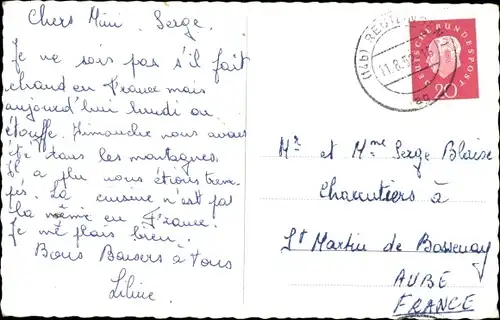 Chers Mimi. Serge.
Je ne sais pas s'il fait
chaud en France mais
aujourd'hui lundi on
étouffe. Dimanche nous avons
été dans les montagnes
il a plu nous étions trem-
pés. La cuisine n'est pas
la même en France.
Je me plais bien.
Bons Baisers à tous
Liline
DEUTSCHE BUNDESPOST
20
(14b)
11.8.
Mr et Mme Serge Blaise
Charcutiers à
St Martin de Bossenay
AUBE
FRANCE